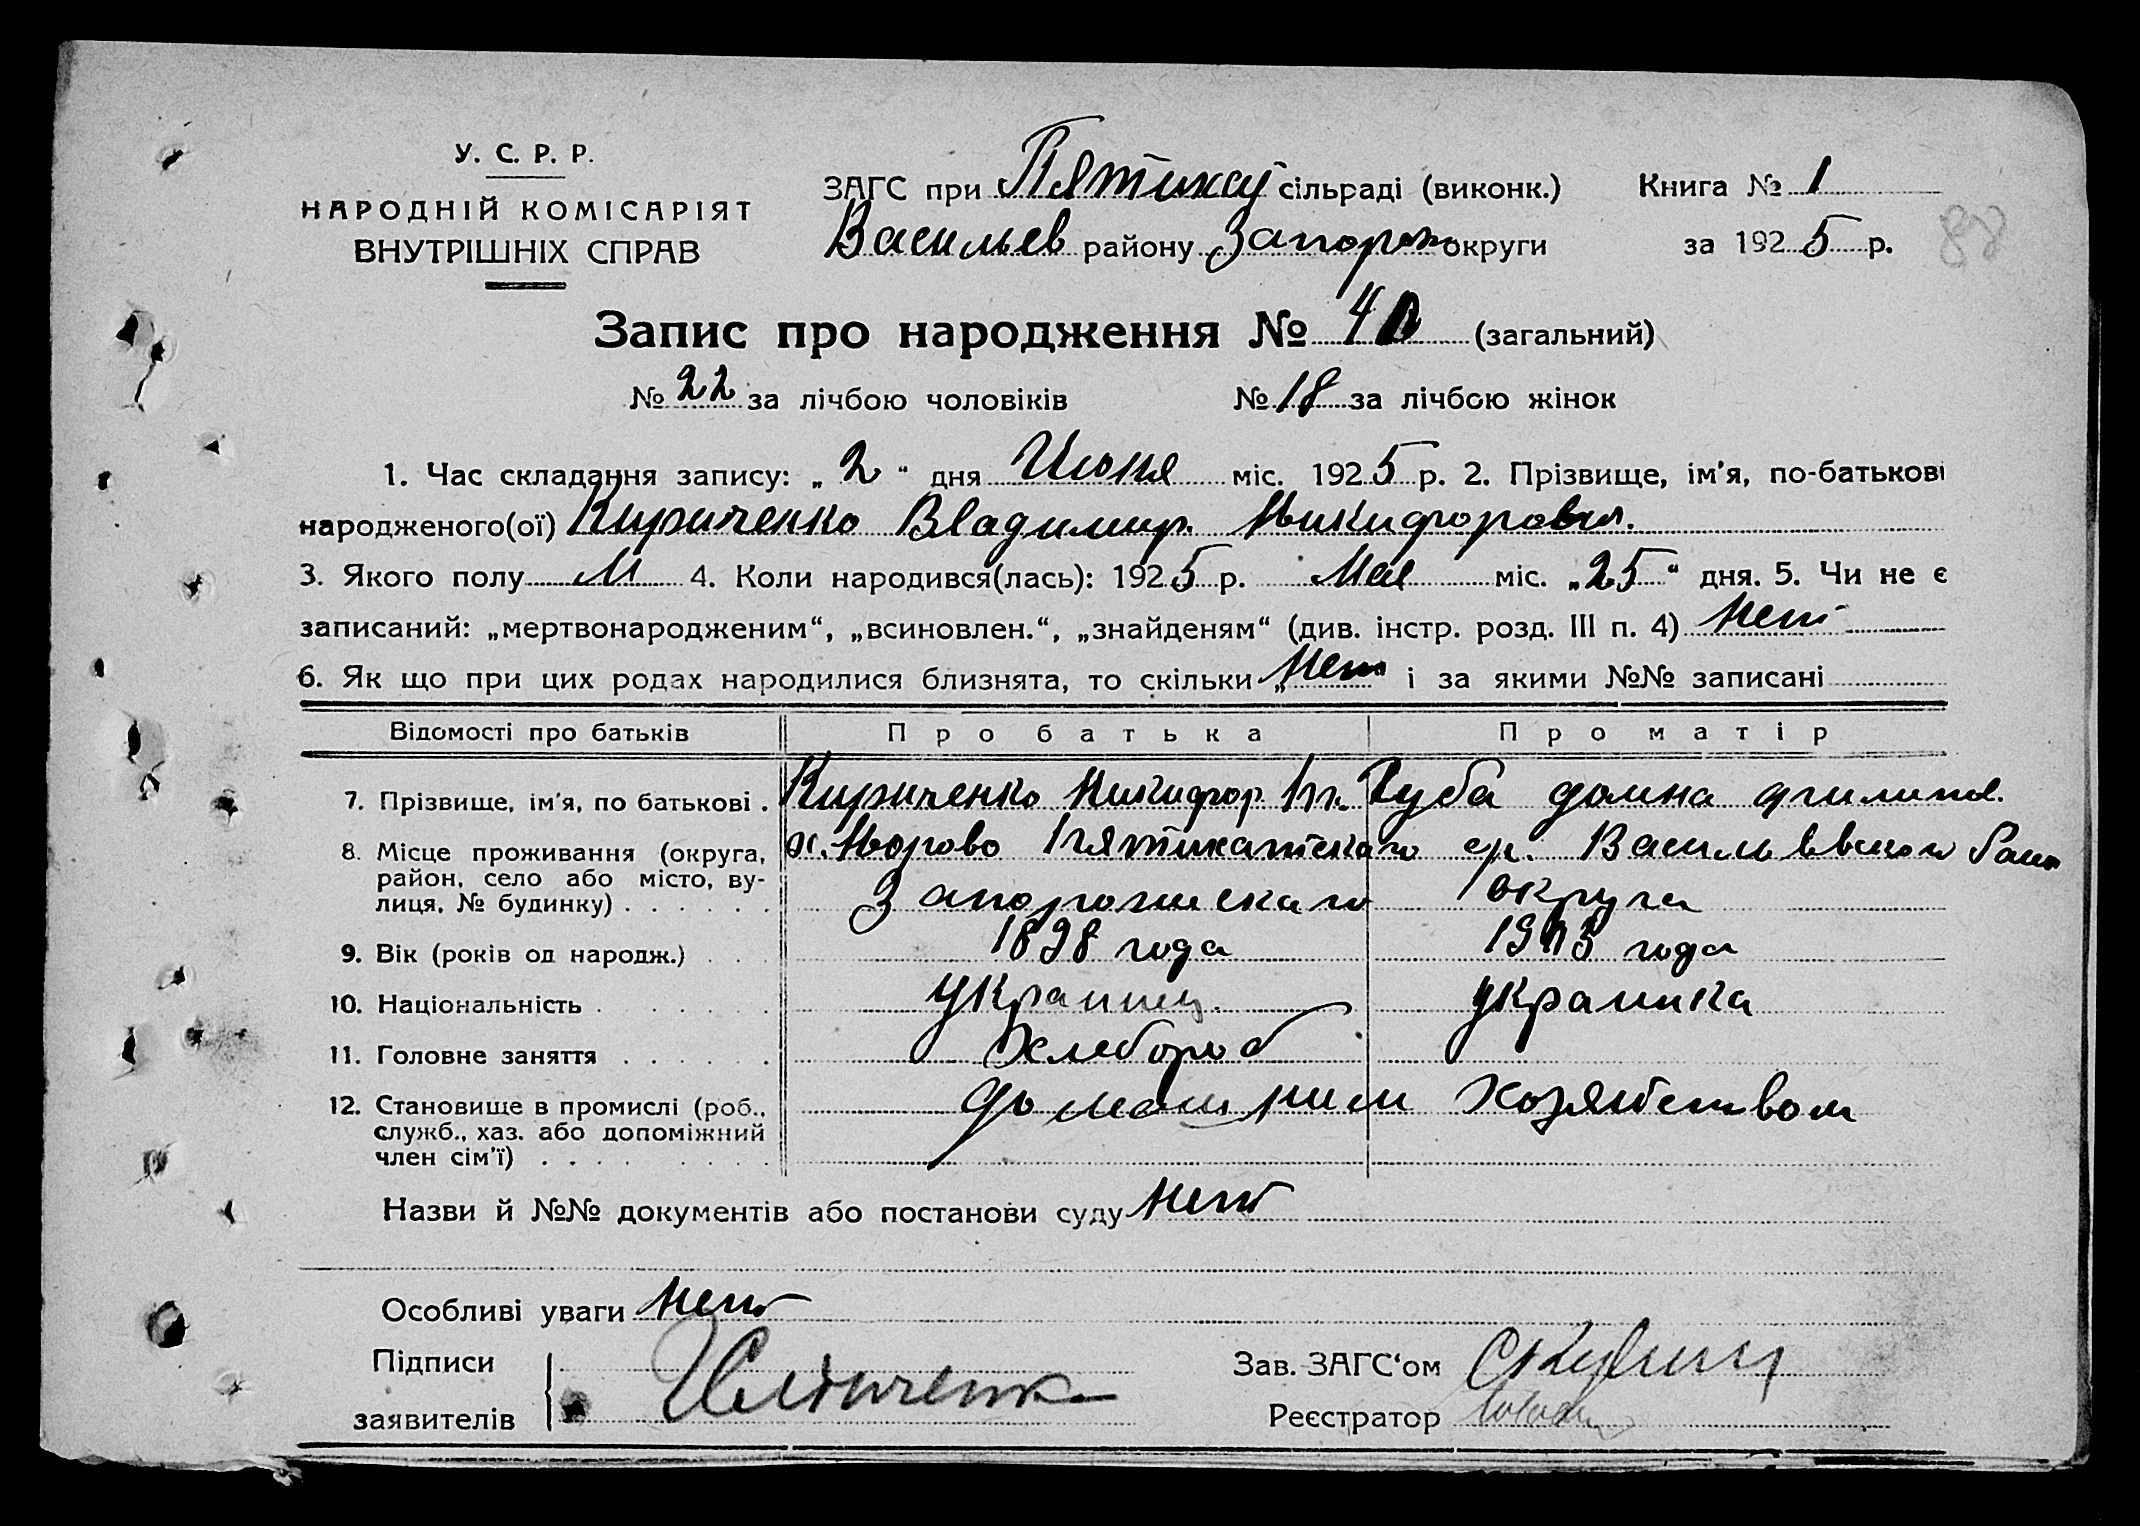 У. С. Р. Р.
НАРОДНІЙ КОМІСАРІЯТ
ВНУТРІШНІХ СПРАВ
ЗАГС при Пятихат сільраді (виконк.) Книга № 1
Васильев району Запорож округи за 1925 р.
88
Запис про народження № 40 (загальний)
№ 22 за лічбою чоловіків № 18 за лічбою жінок
1. Час складання запису: „2“ дня Июня міс. 1925 р. 2. Прізвище, ім'я, по-батькові
народженого(ої) Кириченко Владимир Никифоров
3. Якого полу М 4. Коли народився(лась): 1925 р. Мая міс. „25“ дня. 5. Чи не є
записаний: „мертвонародженим“, „всиновлен.“, „знайденям“ (див. інстр. розд. III п. 4) нет
6. Як що при цих родах народилися близнята, то скільки „нет“ і за якими №№ записані
Відомості про батьків Про батька Про матір
7. Прізвище, ім'я, по батькові . Кириченко Никифор Руба Домна
8. Місце проживання (округа, район, село або місто, вулиця, № будинку) х. Пятихатского ср. Васильевского
Запорожского округа
9. Вік (років од народж.) 1898 года 1903 года
10. Національність украинец украинка
11. Головне заняття Хлебороб
12. Становище в промислі (роб., служб., хаз. або допоміжний член сім'ї) домашним хозяйством
Назви й №№ документів або постанови суду нет
Особливі уваги нет
Підписи
заявителів
Зав. ЗАГС'ом
Реєстратор